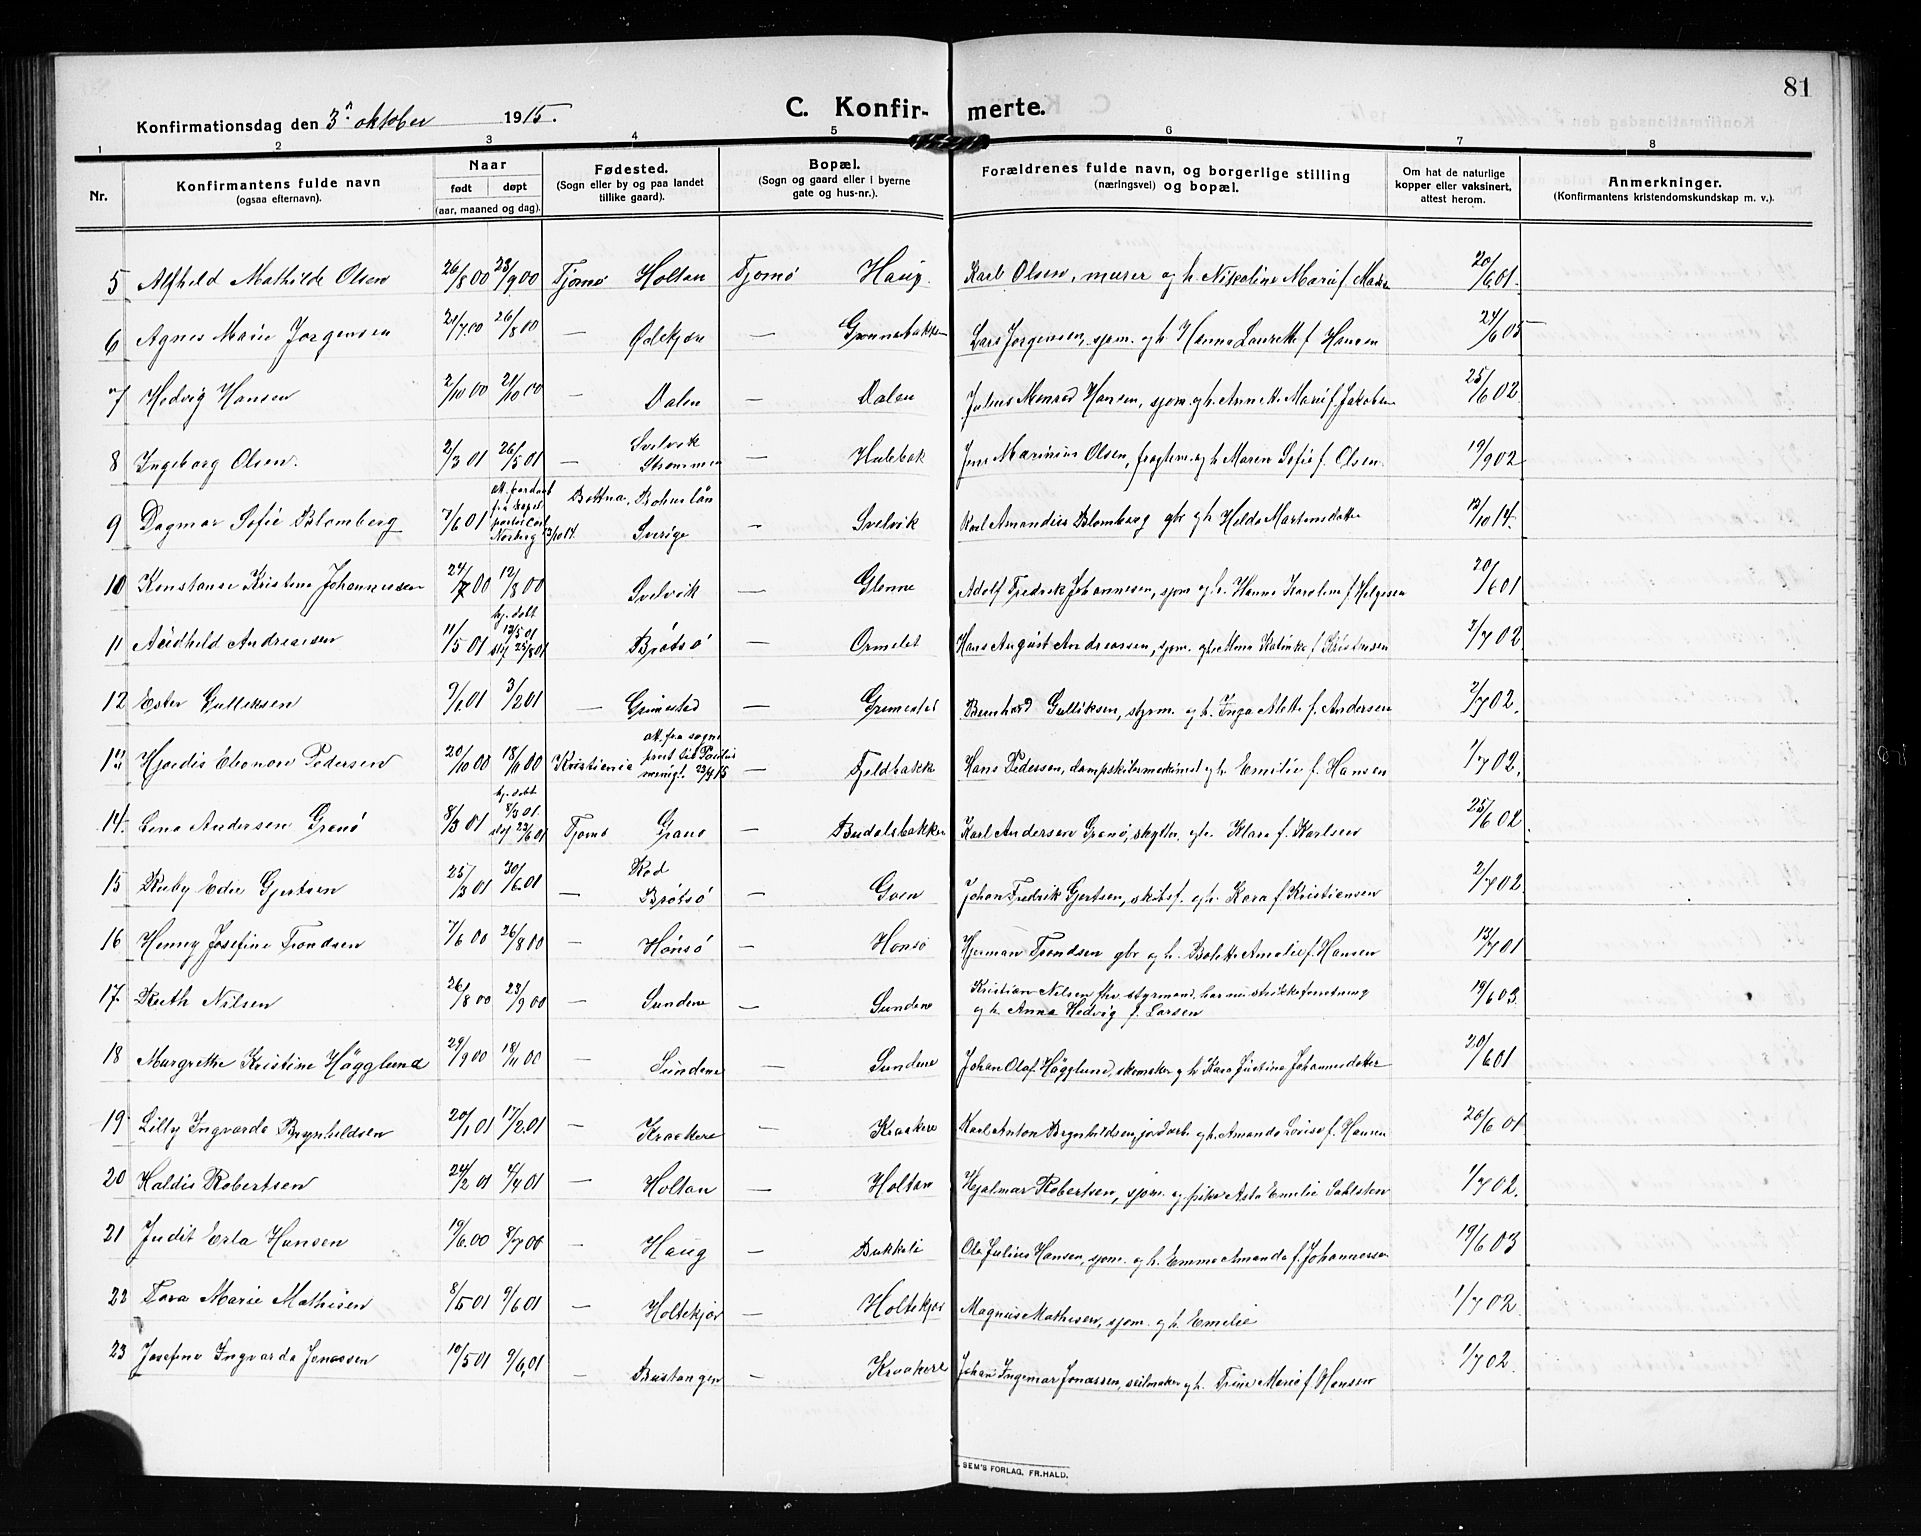 81
Konfirmationsdag den 3. oktober 1915.
C. Konfirmerte.
1 2 3 4 5 6 7 8
Nr.
Konfirmantens fulde navn
(ogsaa efternavn).
Naar
født døpt
(aar, maaned og dag).
Fødested.
(Sogn eller by og paa landet
tillike gaard).
Bopæl.
(Sogn og gaard eller i byerne
gate og hus-nr.).
Forældrenes fulde navn, og borgerlige stilling
(næringsvei) og bopæl.
Om hat de naturlige
kopper eller vaksinert,
attest herom.
Anmerkninger.
(Konfirmantens kristendomskundskap m. v.).
5 Alfhild Mathilde Olsen 26/8 00 23/9 00 Tjømø Holtan Tjømø Haug. Karl Olsen, murer og h. Nikoline Marie f. 20/6 01.
6 Agnes Marie Jørgensen 21/7 00 26/8 00 — Ødekjær — Grønnebakken Lars Jørgensen, sjøm. og h. Hanna Laurette f. Hansen 24/6 05
7 Hedvig Hansen 2/10 00 21/10 00 — Dalen — Dalen Julius Monrad Hansen, sjøm. og h. Annette Marie f. Jakobsen 25/6 02
8 Ingeborg Olsen. 2/3 01 26/5 01 — Svelvik Strømmen — Hulebak Jens Marinius Olsen, og h. Maren Sofie f. Olsen. 19/9 02
9 Dagmar Sofie Blomberg 7/6 01 Bottna, Bohuslän Sverige — Svelvik Karl Amandus Blomberg gbr og h. Hilda Martinsdotter 13/10 14.
10 Konstanse Kristine Johannessen 24/7 00 12/8 00 Svelvik — Glenne Adolf Fredrik Johannesen, sjøm og h. Hanna Karoline f. Helgesen 20/6 01
11 Andreassen 11/5 01 hj. døbt 12/5 01 stf 25/8 01 Brøtsø Ormelet Hans August Andreassen, sjøm. og h. Alma Katinka f. Kristensen 2/7 02
12 Ester Gulliksen 9/1 01 3/2 01 — Grimestad — Grimestad Bernhard Gulliksen, styrm. og h. Inga Alette f. Andersen 2/7 02.
13 Hjørdis Pedersen 20/10 00 18/11 00 Kristiania att. fra sogne — Fjeldbakk Hans Pedersen, og h. Emilie f. Hansen 1/7 02.
14. Lena Andersen Grenø 8/3 01 hj. døbt 8/3 01. stf 23/6 01 Tjømø Grano — Budalsbakken Karl Andersen Grenø, skytter og h. Klara f. Karlsen 25/6 02
15 Ruby Edie Gjertsen 25/3 01 30/6 01 — Rød Brøtsø — Goen Johan Fredrik Gjertsen, skibsf. og h. Kara f. Kristiansen 2/7 02
16 Henny Josefine Trondsen 7/6 00 26/8 00 — Hønsø — Hønsø Hjerman Trondsen gbr og h. Bolette Amalie f. Hansen 13/7 01
17. Ruth Nilsen 26/8 00 23/9 00 — Sundene — Sundene Kristian Nilsen fhv. styrmand, har nu
og h. Anna Hedvig f. Larsen 19/6 03.
18 Margrethe Kristine Högglund 29/9 00 18/11 00 — Sundene — Sundene Johan Olaf Högglund, skomaker og h. Kara Justina Johannesdotter 20/6 01
19 Lilly Ingvarda Brynhildsen 20/1 01 17/2 01 — Kraakere — Kraakere Karl Anton Brynhildsen, jordarb. og h. Amanda Lovise f. Hansen 20/6 01
20 Haldis Robertsen 24/2 01 4/4 01 — Holtan — Holtan Hjalmar Robertsen, sjøm. og pike Asta Emilie Sahlsten 1/7 02.
21 Judit Erla Hansen 19/6 00 8/7 00 — Haug — Bukkeli Ole Julius Hansen, sjøm. og h. Emma Amanda f. Johannessen 19/6 03
22 Tora Marie Mathisen 8/5 01 9/6 01 — Holtekjær — Holtekjær Magnus Mathisen, sjøm. og h. Emilie 1/7 02
23 Josefine Ingvarda Jonassen 10/5 01 9/6 01 — Bustangen — Kraakere Johan Ingemar Jonassen, seilmaker og h. Trine Marie f. Hansen 1/7 02.
SEM'S FORLAG, FR.HALD.